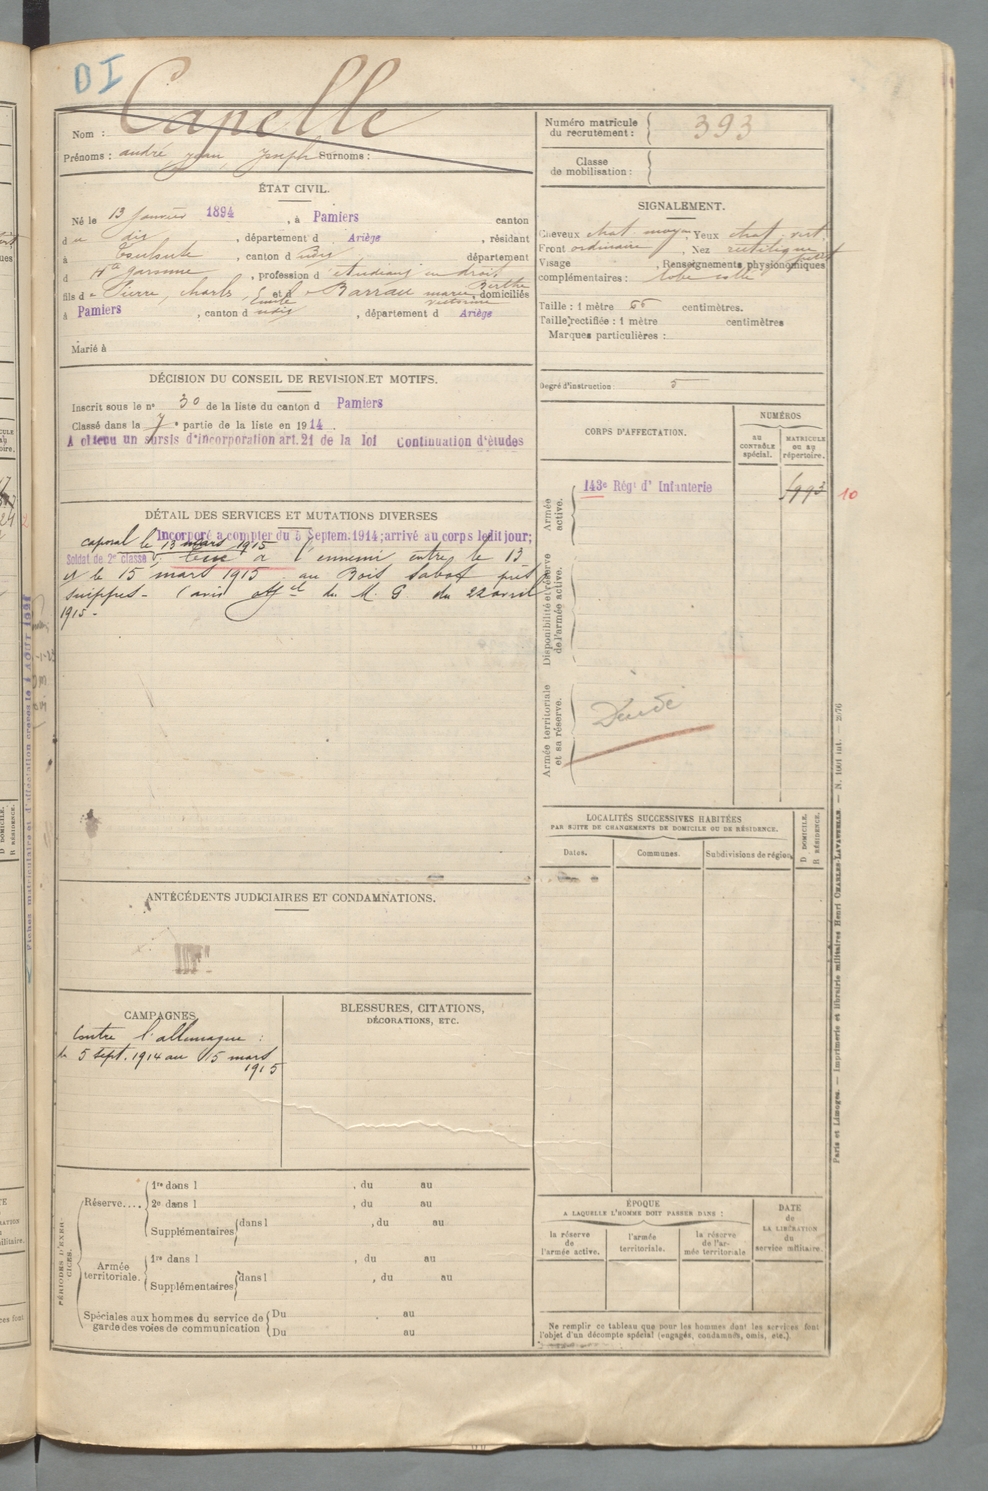 DI
Capelle
Nom :
Prénoms : andré jean Joseph Surnoms :
ÉTAT CIVIL.
Né le 13 Janvier 1894, à Pamiers canton
du dis, département d Ariège, résidant
à Toulouse, canton d département
d Hte Garonne, profession d'étudiant en droit
fils de Pierre, Charles, Emile et d Barrau marie Berthe victorine, domiciliés
à Pamiers, canton d udis, département d Ariège
Marié à
DÉCISION DU CONSEIL DE REVISION ET MOTIFS.
Inscrit sous le n° 30 de la liste du canton d Pamiers
Classé dans la 7e partie de la liste en 1914
A obtenu un sursis d'incorporation art. 21 de la loi Continuation d'études
DÉTAIL DES SERVICES ET MUTATIONS DIVERSES
Incorporé a compter du 5 Septem. 1914; arrivé au corps ledit jour;
caporal le 13 mars 1915
Soldat de 2e classe Tué à l'ennemi entre le 13
et le 15 mars 1915 au Bois Sabot près
Suippes - (avis offciel du M. G du 22 avril
1915 -
ANTÉCÉDENTS JUDICIAIRES ET CONDAMNATIONS.
CAMPAGNES
Contre l'allemagne :
le 5 sept. 1914 au 15 mars
1915
BLESSURES, CITATIONS,
DÉCORATIONS, ETC.
PÉRIODES D'EXERCICES.
Réserve....
1re dans l , du au
2e dans l , du au
Supplémentaires dans l , du au
Armée territoriale.
1re dans l , du au
Supplémentaires dans l , du au
Spéciales aux hommes du service de
garde des voies de communication
Du au
Du au
Numéro matricule
du recrutement : 393
Classe
de mobilisation :
SIGNALEMENT.
Cheveux chat. moyen, Yeux chat. vert
Front ordinaire, Nez rectiligne
Visage , Renseignements physionomiques
complémentaires : lobe collé
Taille : 1 mètre 65 centimètres.
Taille rectifiée : 1 mètre centimètres
Marques particulières :
Degré d'instruction : 5
CORPS D'AFFECTATION.
NUMÉROS
AU CONTRÔLE spécial.
MATRICULE ou au répertoire.
Armée active.
143e Régt d'Infanterie
10
Disponibilité et réserve de l'armée active.
Armée territoriale et sa réserve.
Décédé
LOCALITÉS SUCCESSIVES HABITÉES
PAR SUITE DE CHANGEMENTS DE DOMICILE OU DE RÉSIDENCE.
Dates.
Communes.
Subdivisions de région
D DOMICILE.
R RÉSIDENCE.
ÉPOQUE
A LAQUELLE L'HOMME DOIT PASSER DANS :
la réserve
de
l'armée active.
l'armée
territoriale.
la réserve
de l'armée territoriale
DATE
de
LA LIBÉRATION
du
service militaire.
Ne remplir ce tableau que pour les hommes dont les services font
l'objet d'un décompte spécial (engagés, condamnés, omis, etc.).
Paris et Limoges. — Imprimerie et librairie militaires Henri CHARLES-LAVAUZELLE. — N. 1001 int. — 2676